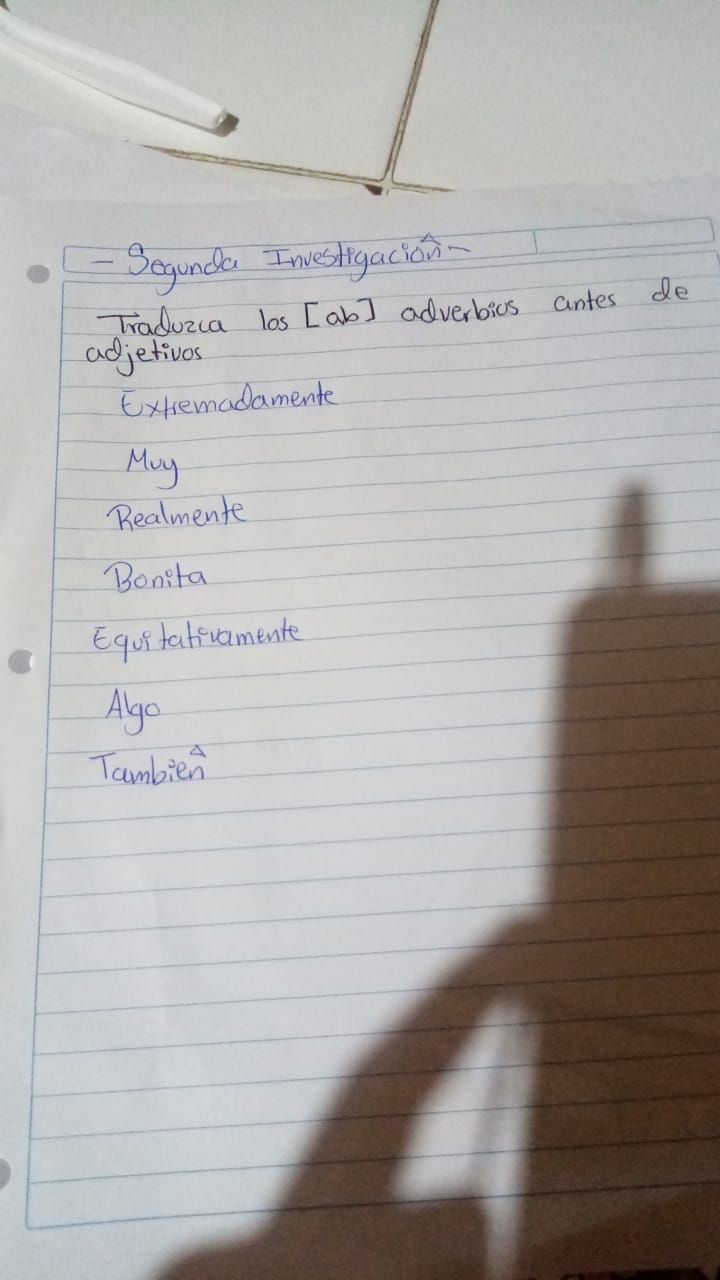 - Segunda Investigación -
Traduzca los [ab] adverbios antes de
adjetivos
Extremadamente
Muy
Realmente
Bonita
Equitativamente
Algo
También